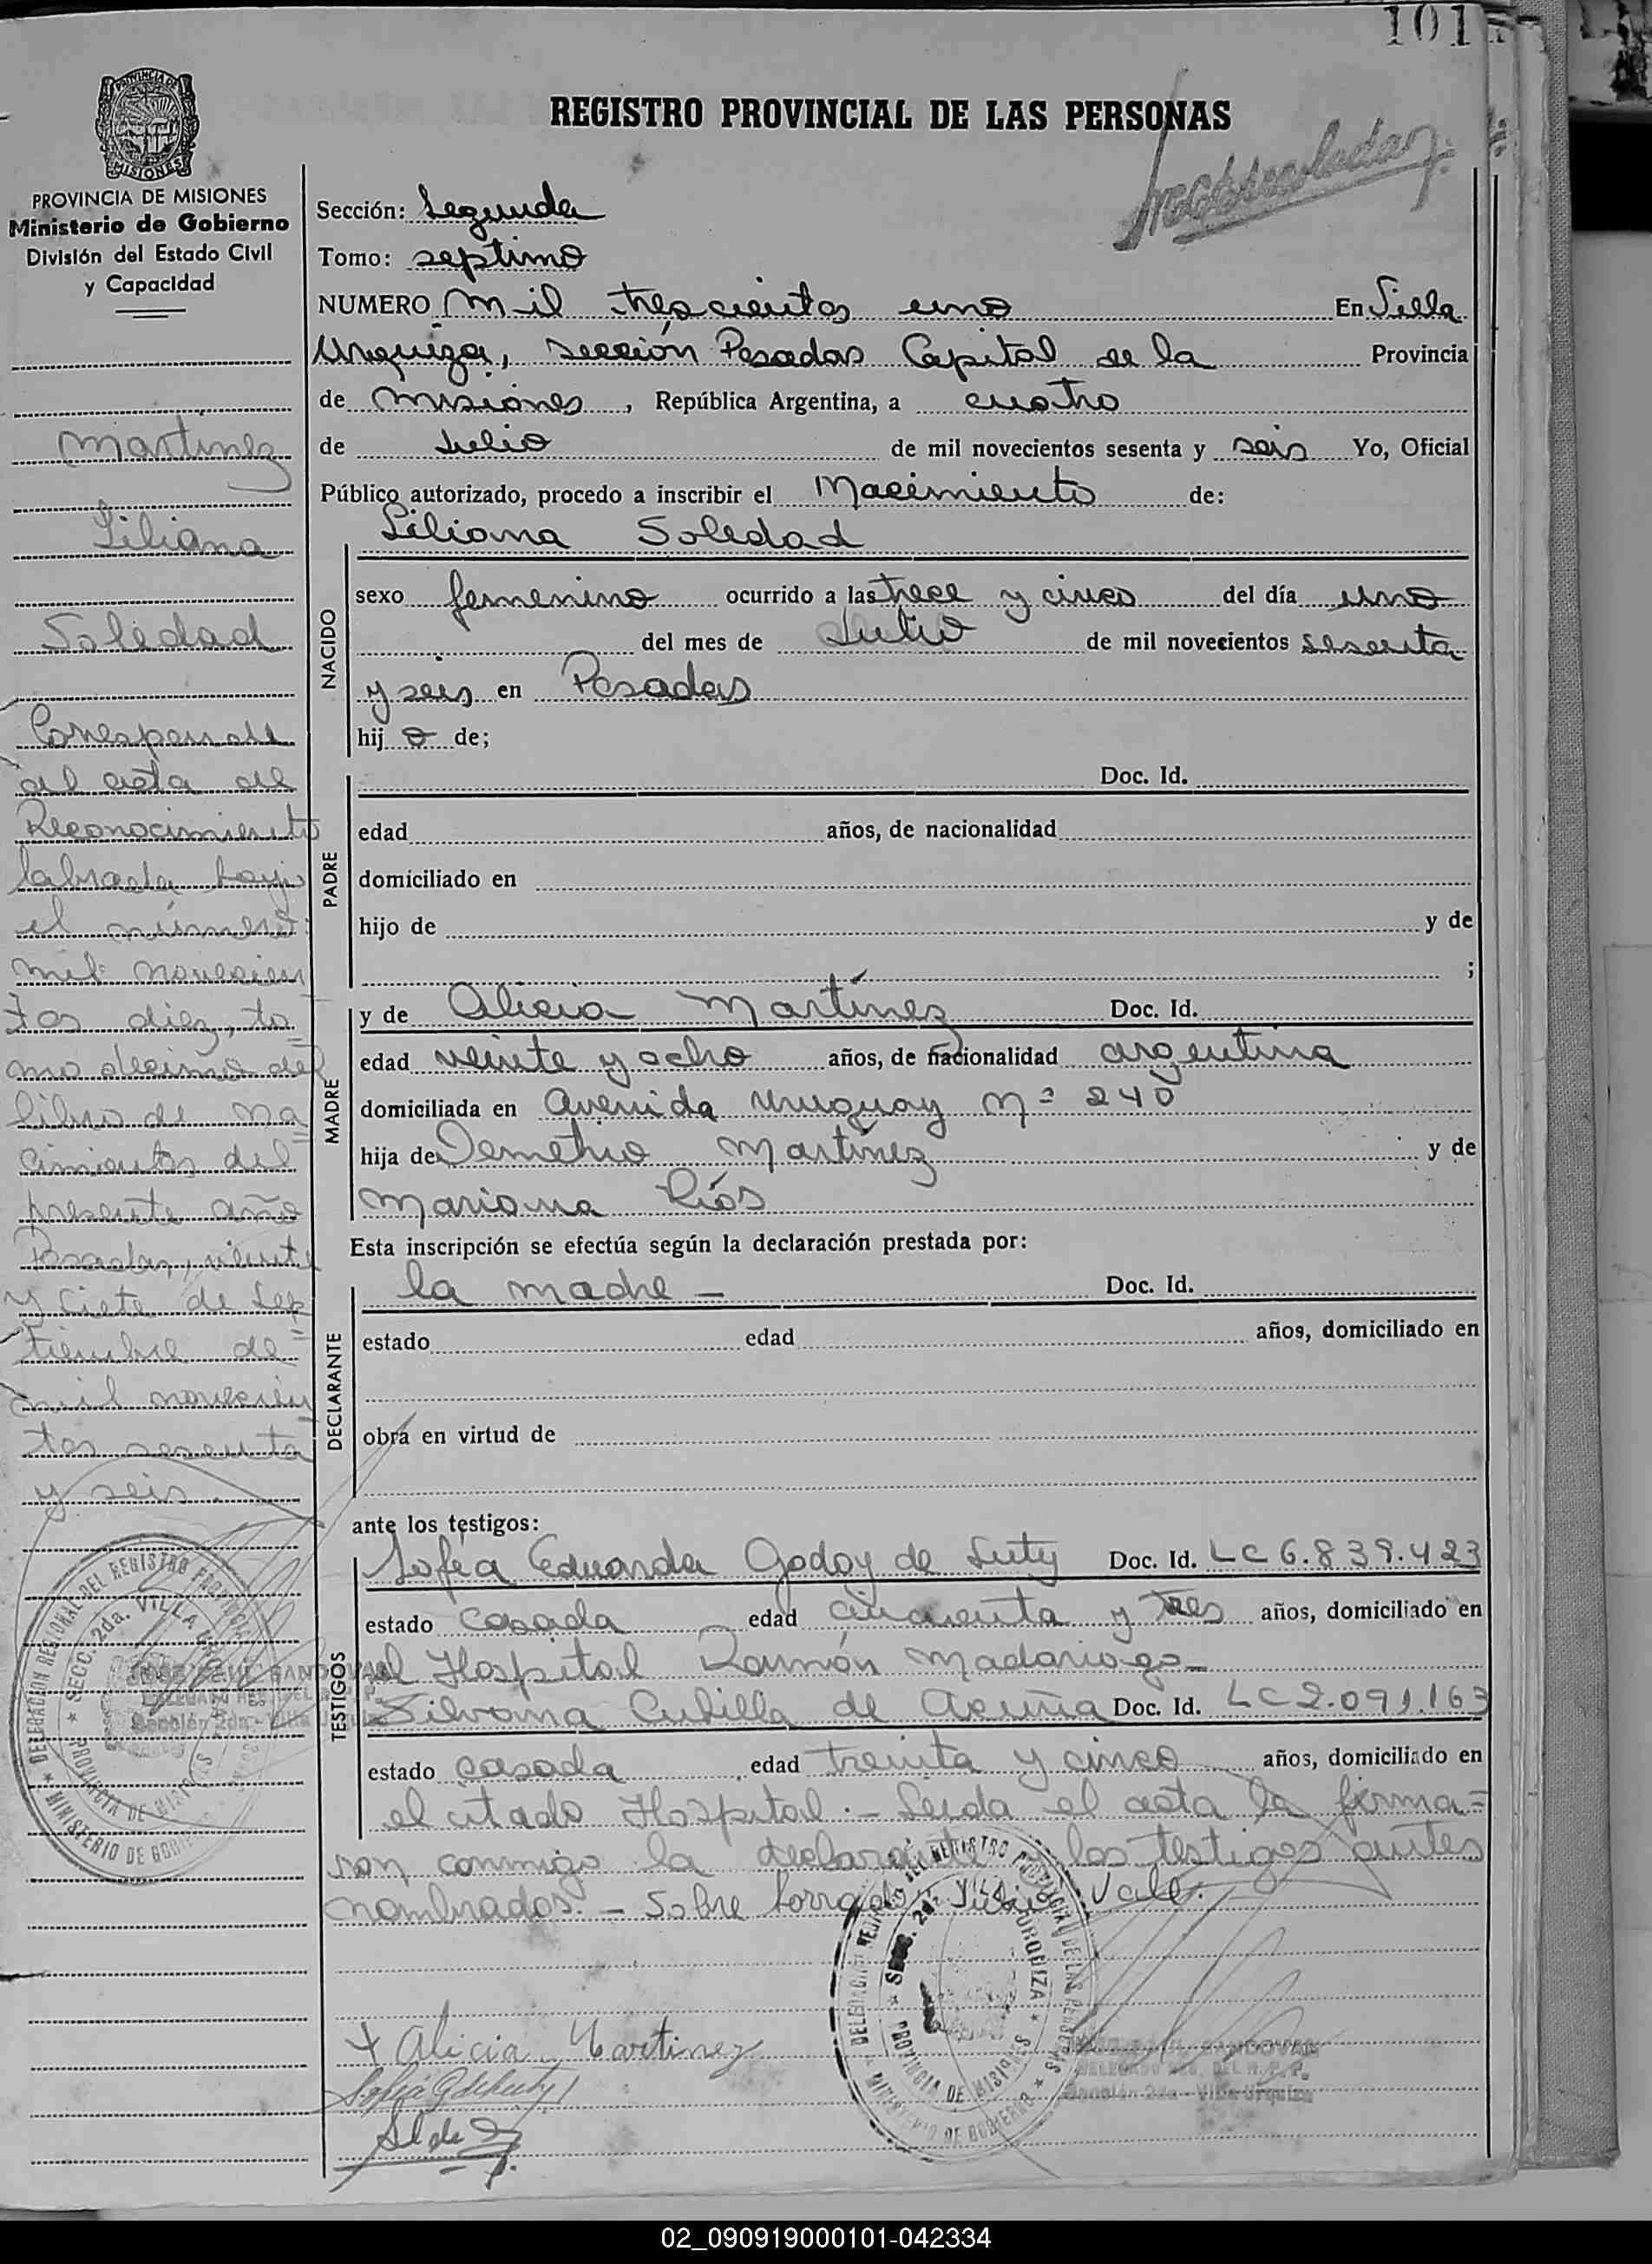 101
REGISTRO PROVINCIAL DE LAS PERSONAS
PROVINCIA DE MISIONES
MISIONES
PROVINCIA DE MISIONES
Ministerio de Gobierno
División del Estado Civil
y Capacidad
Martinez
Liliana
Soledad
Corresponde
al acta de
Reconocimiento
labrada bajo
el número:
mil novecien
tos diez, to
mo decimo del
libro de na
cimientos del
presente año
Posadas, veinte
y siete de Sep
tiembre de
mil novecien
tos sesenta
y seis.
DELEGACION REGIONAL DEL REGISTRO PROVINCIAL
SECC. 2da. VILLA URQUIZA
PROVINCIA DE MISIONES
MINISTERIO DE GOBIERNO
JOSE RAUL SANDOVAL
Sección 2da - Villa
Sección: Segunda
Tomo: septimo
NUMERO mil trescientos uno En Villa
Urquiza, sección Posadas Capital de la Provincia
de Misiones, República Argentina, a cuatro
de Julio de mil novecientos sesenta y seis Yo, Oficial
Público autorizado, procedo a inscribir el Nacimiento de:
Liliana Soledad
NACIDO
sexo femenino ocurrido a las trece y cinco del día uno
del mes de Julio de mil novecientos sesenta
y seis en Posadas
hij a de;
PADRE
Doc. Id.
edad años, de nacionalidad
domiciliado en
hijo de y de
;
MADRE
y de Alicia Martínez Doc. Id.
edad veinte y ocho años, de nacionalidad argentina
domiciliada en Avenida Uruguay Nº 240
hija de Demetrio Martínez y de
Mariana Ríos
Esta inscripción se efectúa según la declaración prestada por:
DECLARANTE
la madre - Doc. Id.
estado edad años, domiciliado en
obra en virtud de
ante los testigos:
TESTIGOS
Sofía Eduarda Godoy de Luty Doc. Id. LC 6.839.423
estado casada edad cincuenta y tres años, domiciliado en
el Hospital Ramón Madariaga
Silvana Cubilla de Acuña Doc. Id. LC 2.091.163
estado casada edad treinta y cinco años, domiciliado en
el citado Hospital. - Leida el acta la firma=
ron conmigo la declarante y los testigos antes
nombrados. - Sobre borrado: Julio Vale.
+ Alicia Martinez
DELEGACION REGIONAL DEL REGISTRO PROVINCIAL DE LAS PERSONAS
SECC. 2da. VILLA URQUIZA
PROVINCIA DE MISIONES
MINISTERIO DE GOBIERNO
SANDOVAL
DELEGADO REG. DEL R. P. P.
Sección 2da - Villa Urquiza
02_090919000101-042334